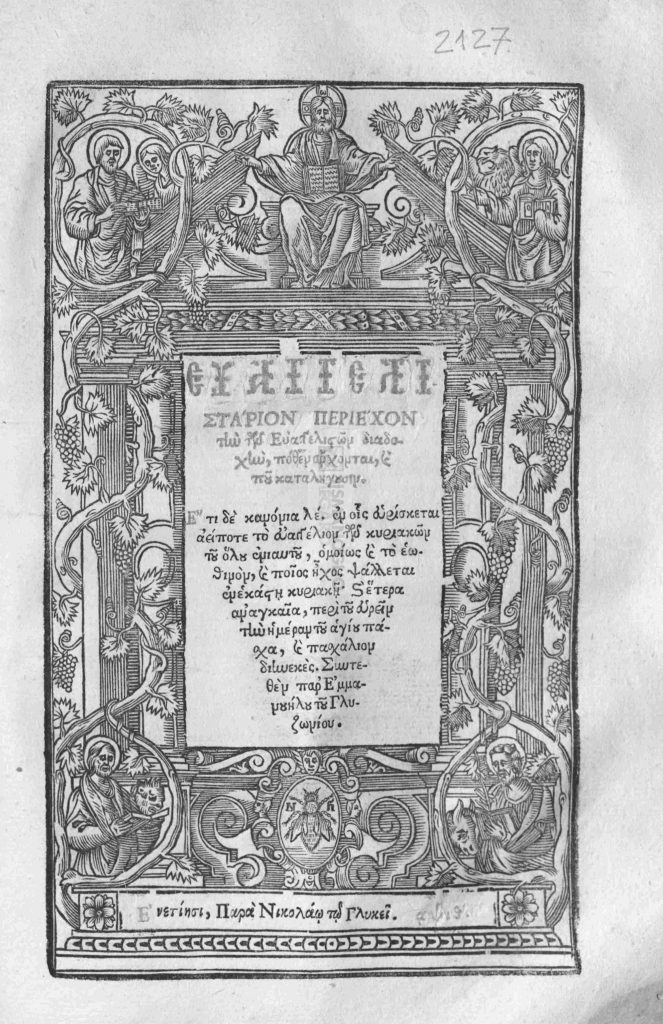 2127
ΕΥΑΓΓΕΛΙ
ΣΤΆΡΙΟΝ ΠΕΡΙΕΧΟΝ
τὴν τῶν Εὐαγγελιστῶν διαδο-
χὴν, πόθεν ἄρχονται, καὶ
ποῦ καταλήγουσιν.
Ἔτι δὲ κανόνια λε. ἐν οἷς εὑρίσκεται
ἀείποτε τὸ εὐαγγέλιον τῶν κυριακῶν
τοῦ ὅλου ἐνιαυτοῦ, ὁμοίως καὶ τὸ ἑω-
θινὸν, καὶ ποῖος ἦχος ψάλλεται
ἐν ἑκάστῃ κυριακῇ· καὶ ἕτερα
ἀναγκαῖα, περὶ τοῦ εὑρεῖν
τὴν ἡμέραν τοῦ ἁγίου πά-
σχα, καὶ πασχάλιον
διηνεκές. Συντε-
θὲν παρ' Ἐμμα-
νουήλου τοῦ Γλυ-
ζωνίου.
Ν Γ
Ἐνετίησι, Παρὰ Νικολάῳ τῷ Γλυκεῖ.